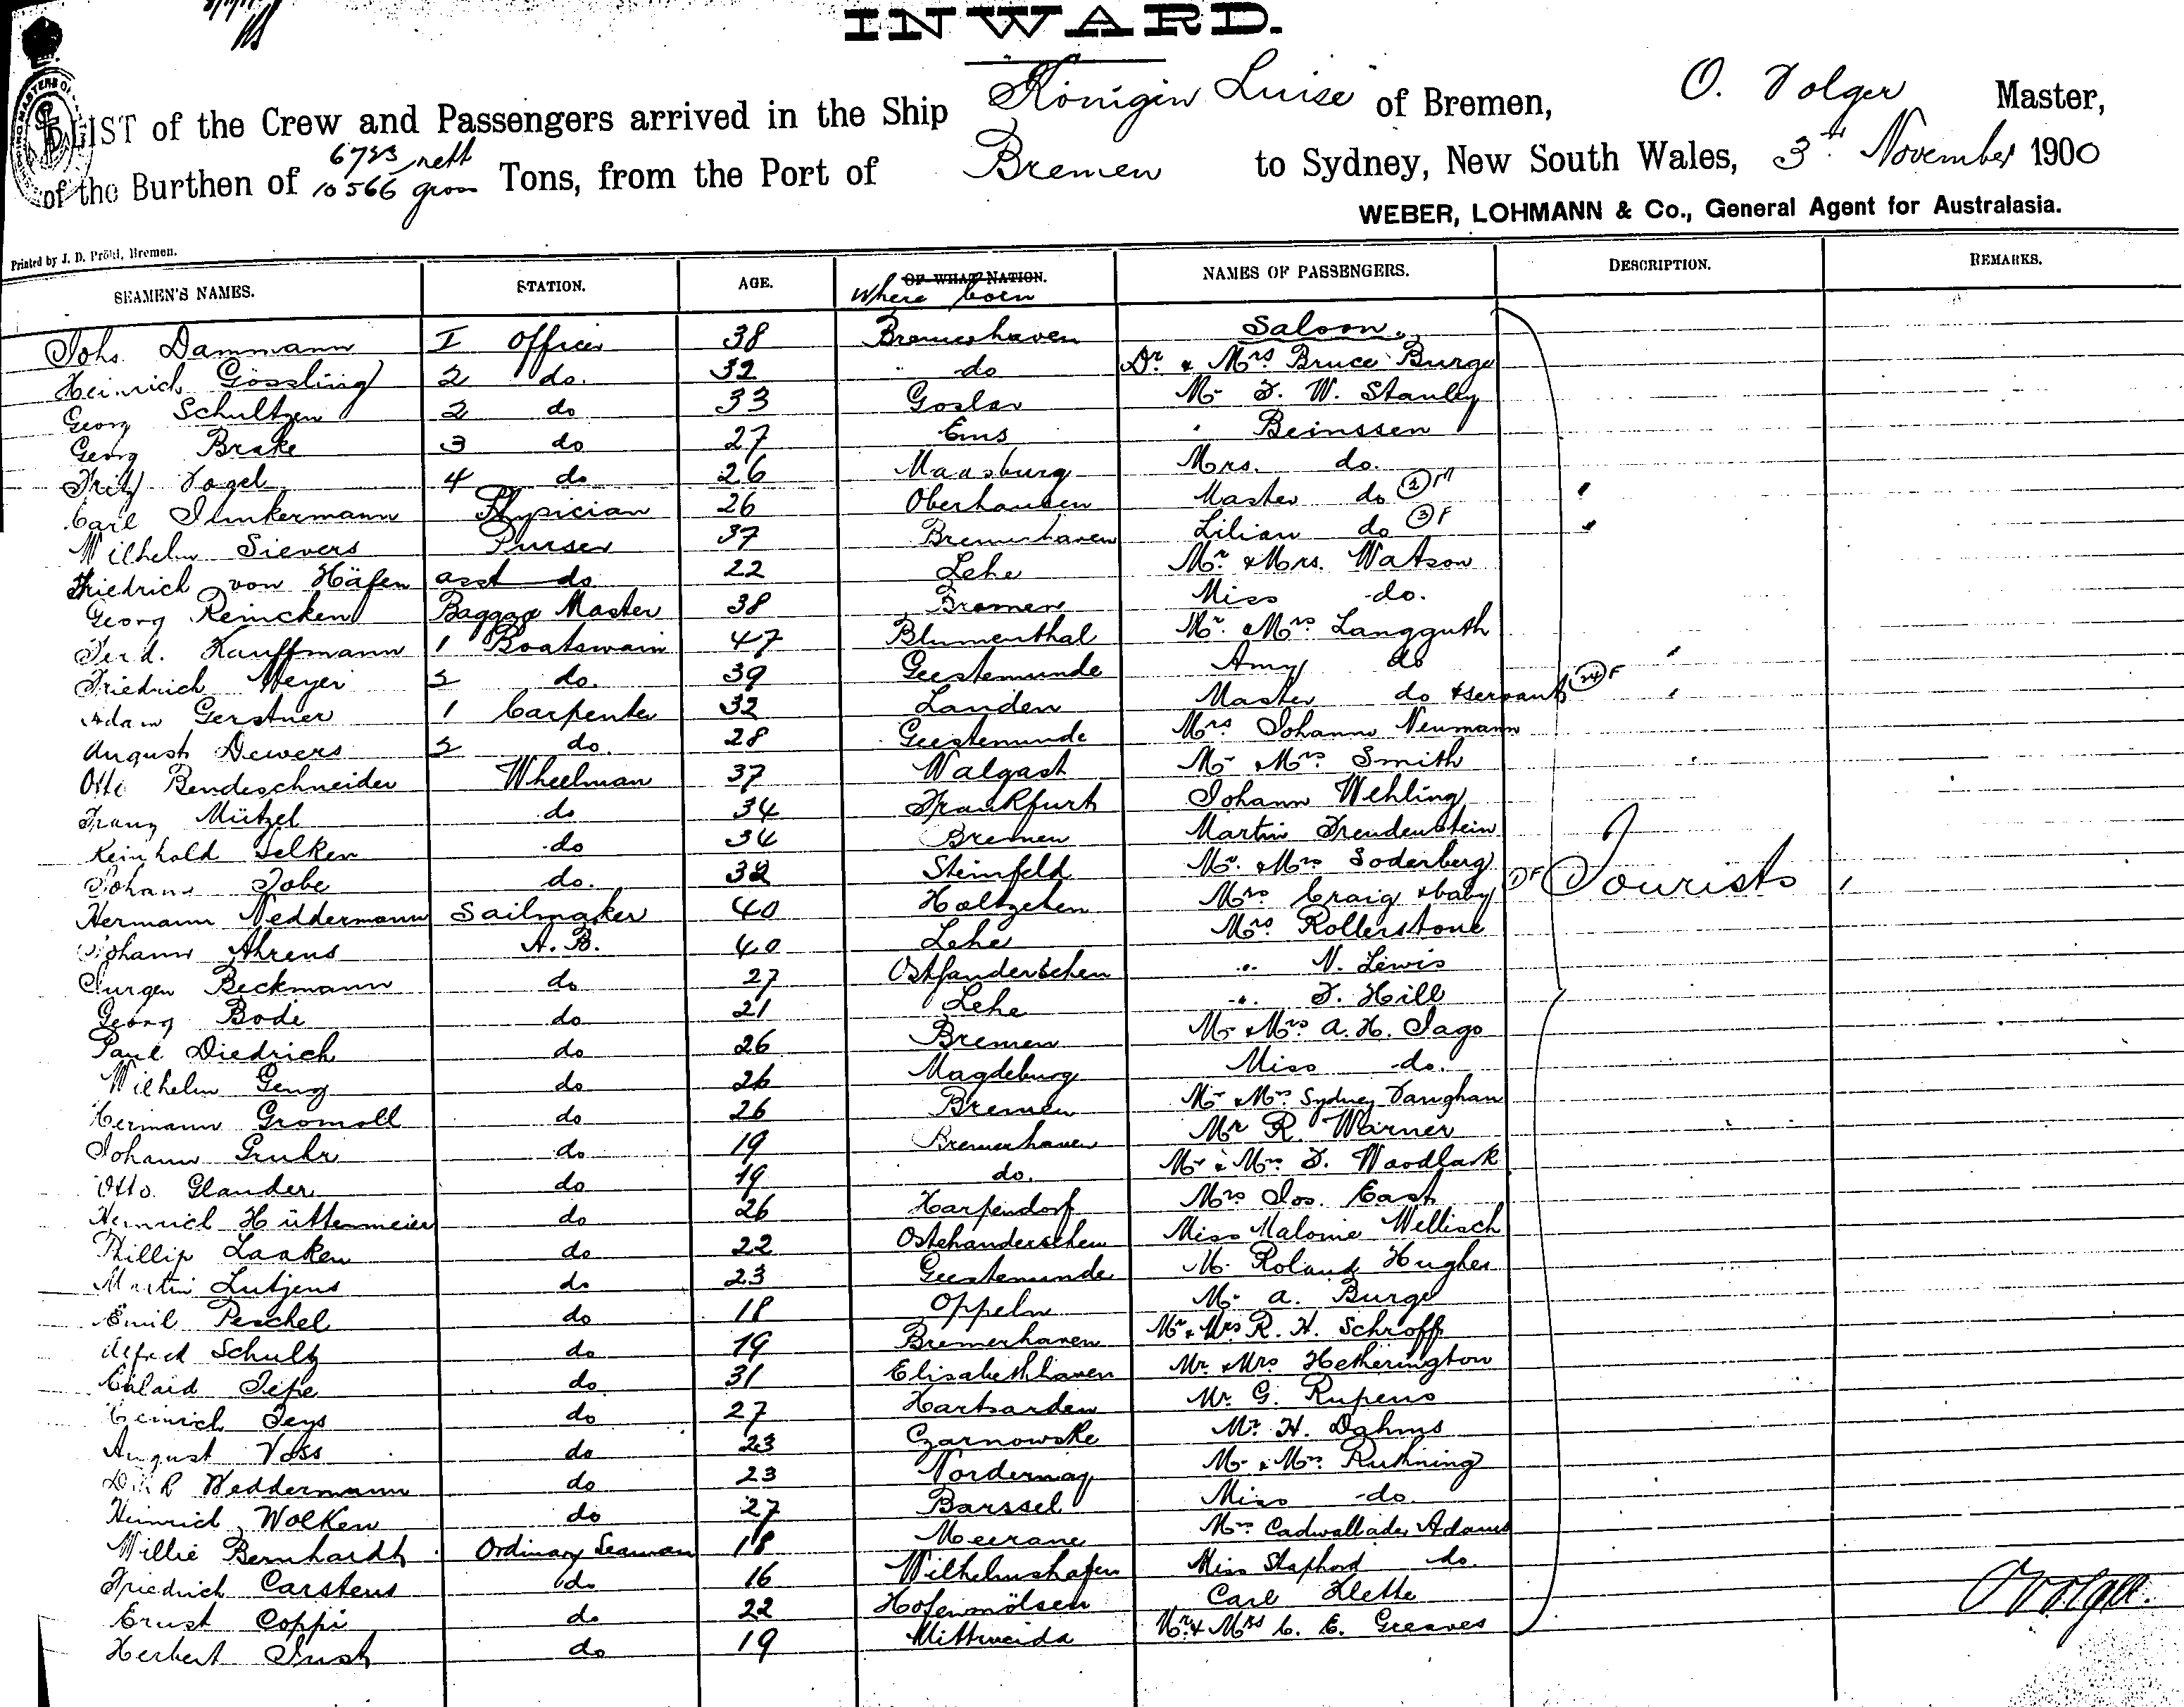 INWARD.
LIST of the Crew and Passengers arrived in the Ship Königin Luise of Bremen, O. Volger Master,
of the Burthen of 6783 nett 10566 gross Tons, from the Port of Bremen to Sydney, New South Wales, 3rd November 1900
WEBER, LOHMANN & Co., General Agent for Australasia.
Printed by J. D. Pröhl, Bremen.
SEAMEN'S NAMES. STATION. AGE. OF WHAT NATION. Where born NAMES OF PASSENGERS. DESCRIPTION. REMARKS.
Johs. Dammann I Officer 38 Bremerhaven Saloon.
Heinrich Gössling 2 do. 32 do Dr. & Mrs Bruce Burge
Georg Schultzen 2 do 33 Goslar Mr F. W. Stanley
Georg Brake 3 do 27 Ems " Beinssen
Fritz Vogel 4 do 26 Maasburg Mrs. do.
Carl Physician 26 Oberhausen Master do 2 M
Wilhelm Sievers Purser 37 Bremerhaven Lilian do 3 F
Friedrich von Häfen asst do 22 Lehe Mr. & Mrs. Watson
Georg Reincken Baggage Master 38 Bremen Miss do.
Ferd. Kauffmann 1 Boatswain 47 Blumenthal Mr. & Mrs Langguth
Friedrich Meyer 2 do. 39 Geestemunde Amy do
Adam Gerstner 1 Carpenter 32 Landen Master do & servant F
August Dewers 2 do. 28 Geestemunde Mrs Johanna Neumann
Otto Bendeschneider Wheelman 37 Walgast Mr & Mrs Smith
Franz Mützel do 34 Frankfurt Johann Wehling
Reinhold Selken do 34 Bremen Martin Freudenstein
Johann Tobe do. 32 Steinfeld Mr. & Mrs Soderberg
Hermann Neddermann Sailmaker 40 Holtzeten Mrs Craig & baby F Tourists
Johann Ahrens A.B. 40 Lehe Mrs Rollerstone
Jurgen Beckmann do 27 Ostfanderschen " N. Lewis
Georg Bode do 21 Lehe " F. Hill
Paul Diedrich do 26 Bremen Mr & Mrs A. H. Jago
Wilhelm Geng do 26 Magdeburg Miss do.
Hermann Gromoll do 26 Bremen Mr & Mrs Sydney Vaughan
Johann Gruhr do 19 Bremerhaven Mr R. Warner
Otto Glander do 19 do. Mr & Mrs F. Woodlark
Heinrich Hüttenmeier do 26 Harpendorf Mrs Jos. East
Phillip Laaken do 22 Ostehanderschen Miss Malonie Wellisch
Martin Lutjens do 23 Geestemunde M. Roland Hughes
Emil Peschel do 18 Oppeln Mr A. Burge
Alfred Schultz do 19 Bremerhaven Mr & Mrs R. H. Schroff
Eilard Tepe do. 31 Elisabethhaven Mr & Mrs Hetherington
Heinrich Teys do 27 Hartsarden Mr. G. Rupens
August Voss do 23 Czarnowske Mr. H. Dahms
Dirk Weddermann do 23 Norderney Mr & Mrs Ruthning
Heinrich Wolken do 27 Barssel Miss do
Willie Bernhardt Ordinary Seaman 18 Meerane Mrs Cadwallader Adams
Friedrich Carstens do 16 Wilhelmshafen Miss Shaphord do.
Ernst Coppi do 22 Hofenmölsen Carl Klette
Herbert Just do 19 Mittweida Mr. & Mrs C. E. Greaves
O Volger.